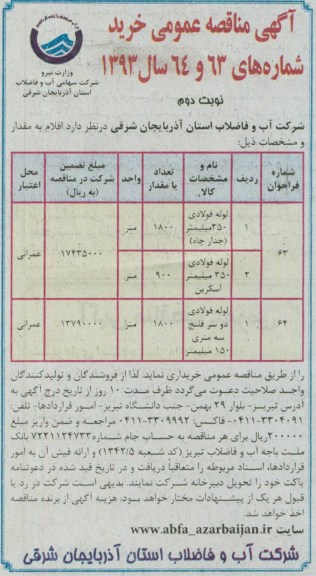 آگهی مناقصه عمومی خرید
شماره‌های ۶۳ و ۶۴ سال ۱۳۹۳
نوبت دوم
وزارت نیرو
شرکت سهامی آب و فاضلاب
استان آذربایجان شرقی
شرکت آب و فاضلاب استان آذربایجان شرقی درنظر دارد اقلام به مقدار
و مشخصات ذیل:
شماره فراخوان | ردیف | نام و مشخصات کالا | تعداد یا مقدار | واحد | مبلغ تضمین شرکت در مناقصه (به ریال) | محل اعتبار
۶۳ | ۱ | لوله فولادی ۳۵۰میلیمتر (جدار چاه) | ۱۸۰۰ | متر | ۱۷۴۳۵۰۰۰ | عمرانی
۲ | لوله فولادی ۳۵۰ میلیمتر اسکرین | ۹۰۰ | متر
۶۴ | ۱ | لوله فولادی دو سر فلنج سه متری ۱۵۰ میلیمتر | ۱۸۰۰ | متر | ۱۳۷۹۰۰۰۰ | عمرانی
را از طریق مناقصه عمومی خریداری نماید. لذا از فروشندگان و تولیدکنندگان
واجد صلاحیت دعوت می‌گردد ظرف مدت ۱۰ روز از تاریخ درج آگهی به
آدرس تبریز- بلوار ۲۹ بهمن- جنب دانشگاه تبریز- امور قراردادها- تلفن:
۳۳۰۴۰۹۱-۰۴۱۱ فاکس: ۳۳۰۹۹۹۲-۰۴۱۱ مراجعه و ضمن واریز مبلغ
۲۰۰۰۰۰ ریال برای هر مناقصه به حساب جام شماره ۷۲۲۱۱۲۴۷۳۳ بانک
ملت باجه آب و فاضلاب تبریز (کد شعبه ۱۳۴۲/۵) و ارائه فیش آن به امور
قراردادها، اسناد مربوطه را متعاقباً دریافت و در تاریخ قید شده در دعوتنامه
پاکت خود را تحویل دبیرخانه شرکت نمایند. بدیهی است شرکت در رد یا
قبول هر یک از پیشنهادات مختار خواهد بود. هزینه آگهی از برنده مناقصه
اخذ خواهد شد.
سایت www.abfa_azarbaijan.ir
شرکت آب و فاضلاب استان آذربایجان شرقی